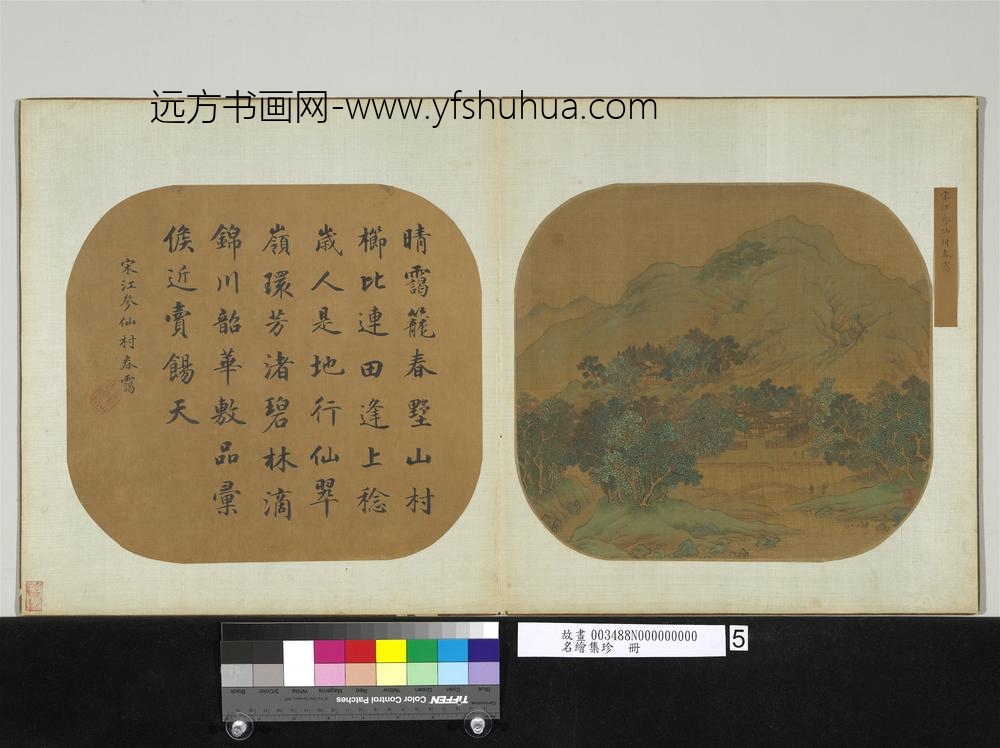 远方书画网-www.yfshuhua.com
晴靄籠春墅山村
櫛比連田逢上稔
歲人是地行仙翠
嶺環芳渚碧林滴
錦川韶華敷品彙
候近賣餳天
宋江參仙村春靄
宋江參仙村春靄
故畫 003488N000000000
名繪集珍 冊
5
TIFFEN Color Control Patches
Blue Cyan Green Yellow Red Magenta White 3/Color Black